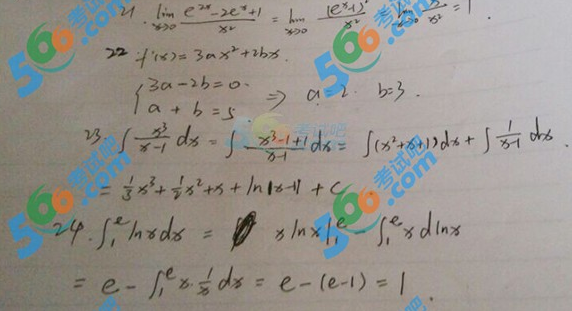 21. lim x→0 (e^{2x}-2e^x+1)/x² = lim x→0 (e^x-1)²/x² = lim x→0 x²/x² = 1.
22. f'(x)=3ax²+2bx.
{3a-2b=0. a+b=5. ⇒ a=2. b=3.
23 ∫ x³/(x-1) dx = ∫ (x³-1+1)/(x-1) dx = ∫(x²+x+1)dx + ∫ 1/(x-1) dx.
= 1/3 x³ + 1/2 x² + x + ln|x-1| + C.
24. ∫₁^e lnx dx = x lnx|₁^e - ∫₁^e x dlnx
= e - ∫₁^e x·1/x dx = e-(e-1) = 1.
566考试吧
566考试吧
566考试吧
566考试吧
566考试吧